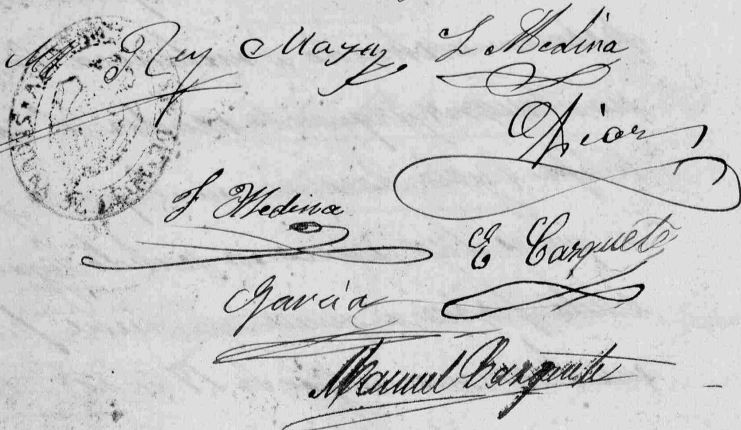 M Rey Maya L Medina
Diaz
F Medina
E Cazquete
Garcia
Manuel Cazquete